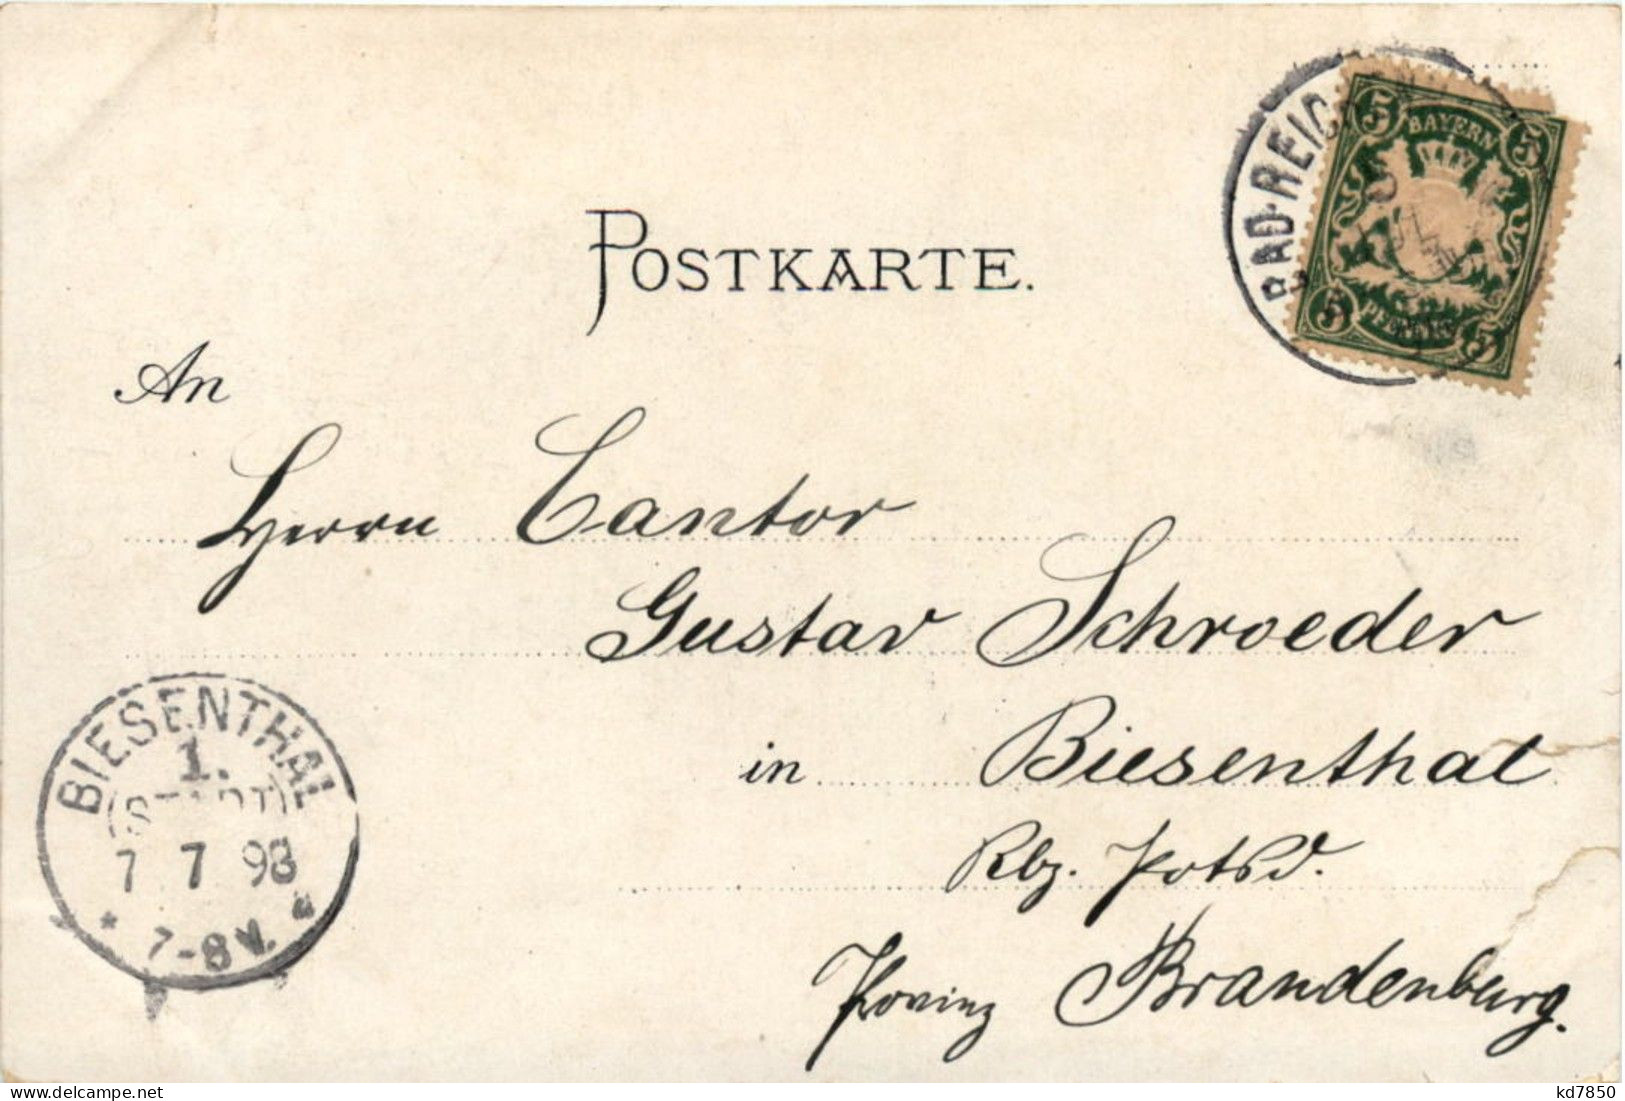 POSTKARTE.
BAD-REICH
5 BAYERN 5
5 PFENNIG 5
An
Herrn Cantor
Gustav Schroeder
in Biesenthal
Rbz. Potsd.
Provinz Brandenburg.
BIESENTHAL
1.
7 7 98
* 7-8 V. *
kd7850